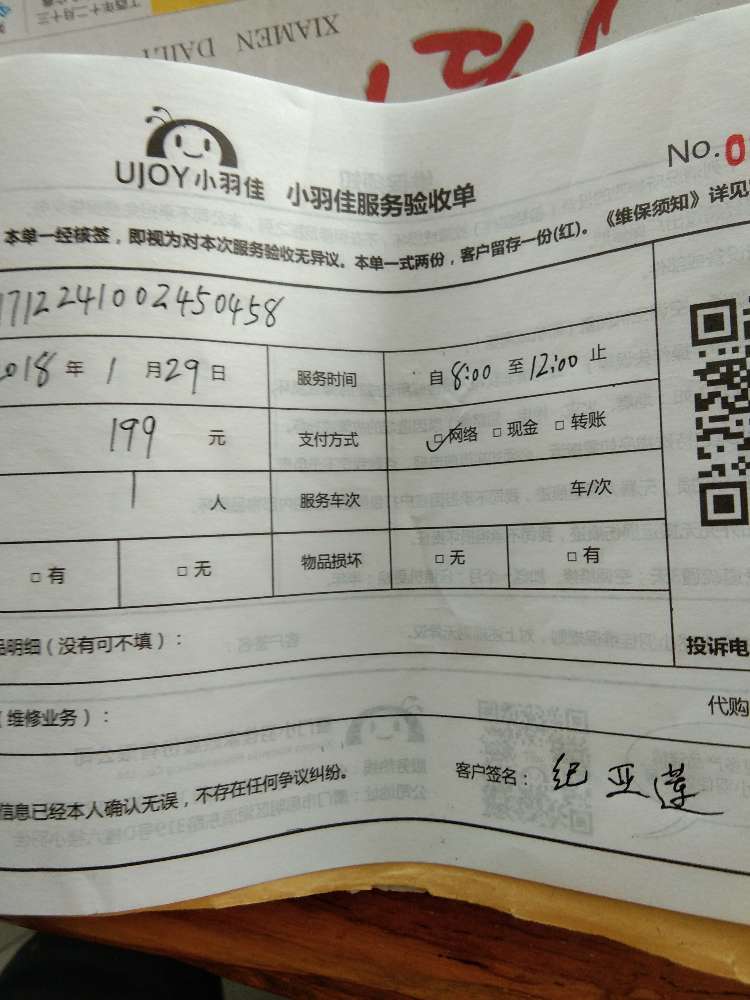 XIAMEN DAIL
UJOY小羽佳 小羽佳服务验收单
No.0
本单一经核签，即视为对本次服务验收无异议。本单一式两份，客户留存一份(红)。《维保须知》详见
1712241002450458
2018年1月29日 服务时间 自8:00至12:00止
199元 支付方式 ☑网络 □现金 □转账
1人 服务车次 车/次
□有 □无 物品损坏 □无 □有
品明细(没有可不填)：
投诉电
(维修业务)：
代购
信息已经本人确认无误，不存在任何争议纠纷。
客户签名：纪亚莲